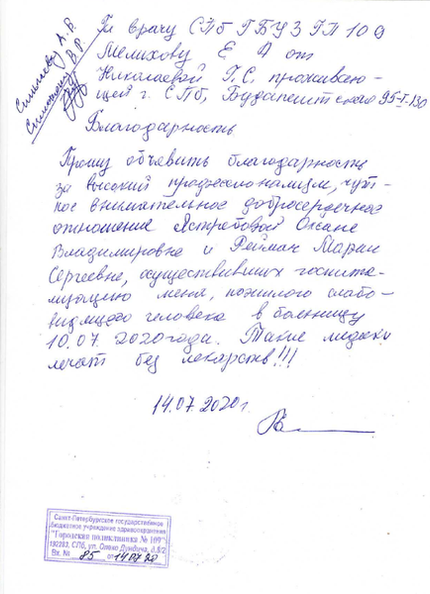 Гл врачу СПб ГБУЗ ГП 109
Мелихову Е А от
Николаевой Г.С. проживаю-
щей г. СПб, Будапештская 95-1-130
Благодарность
Прошу объявить благодарность
за высокий профессионализм, чут-
кое внимательное добросердечное
отношение Ястребовой Оксане
Владимировне и Рейман Марии
Сергеевне, осуществивших госпита-
лизацию меня, пожилого слабо-
видящего человека в больницу
10.07.2020года. Такие медики
лечат без лекарств!!!
14.07.2020г.
Санкт-Петербургское государственное
бюджетное учреждение здравоохранения
"Городская поликлиника № 109"
192283, СПб, ул. Олеко Дундича, д.8/2
Вх. № 85 от 14.07.20